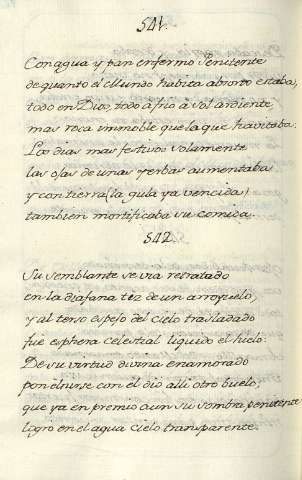 541.
Con agua y pan enfermo Penitente
de quanto el Mundo habita absorto estaba,
todo en Dios, todo al frio à sol ardiente
mas roca immoble que la que havitaba.
Los dias mas festivos solamente
las ojas de unas yerbas aumentaba
y con tierra (la gula ya vencida)
tambien mortificaba su comida.
542
Su semblante se via retratado
en la diafana tez de un arroyuelo,
y al terso espejo del cielo trasladado
fue esphera celestial liquido el hielo:
De su virtud divina enamorado
por unirse con el dio alli otro buelo,
que ya en premio aun su sombra penitente
logrò en el agua cielo transparente.